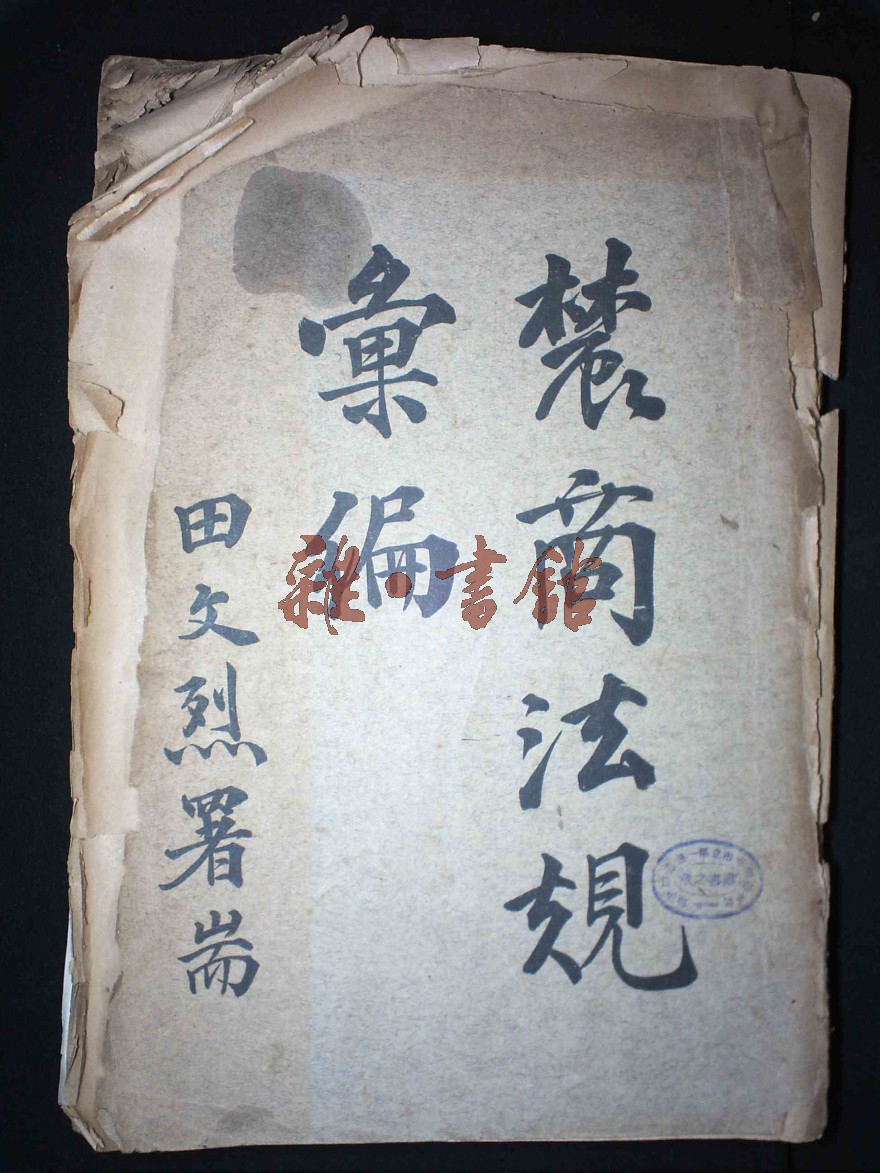 䢉商法規
彙編
田文烈署耑
雜·書館